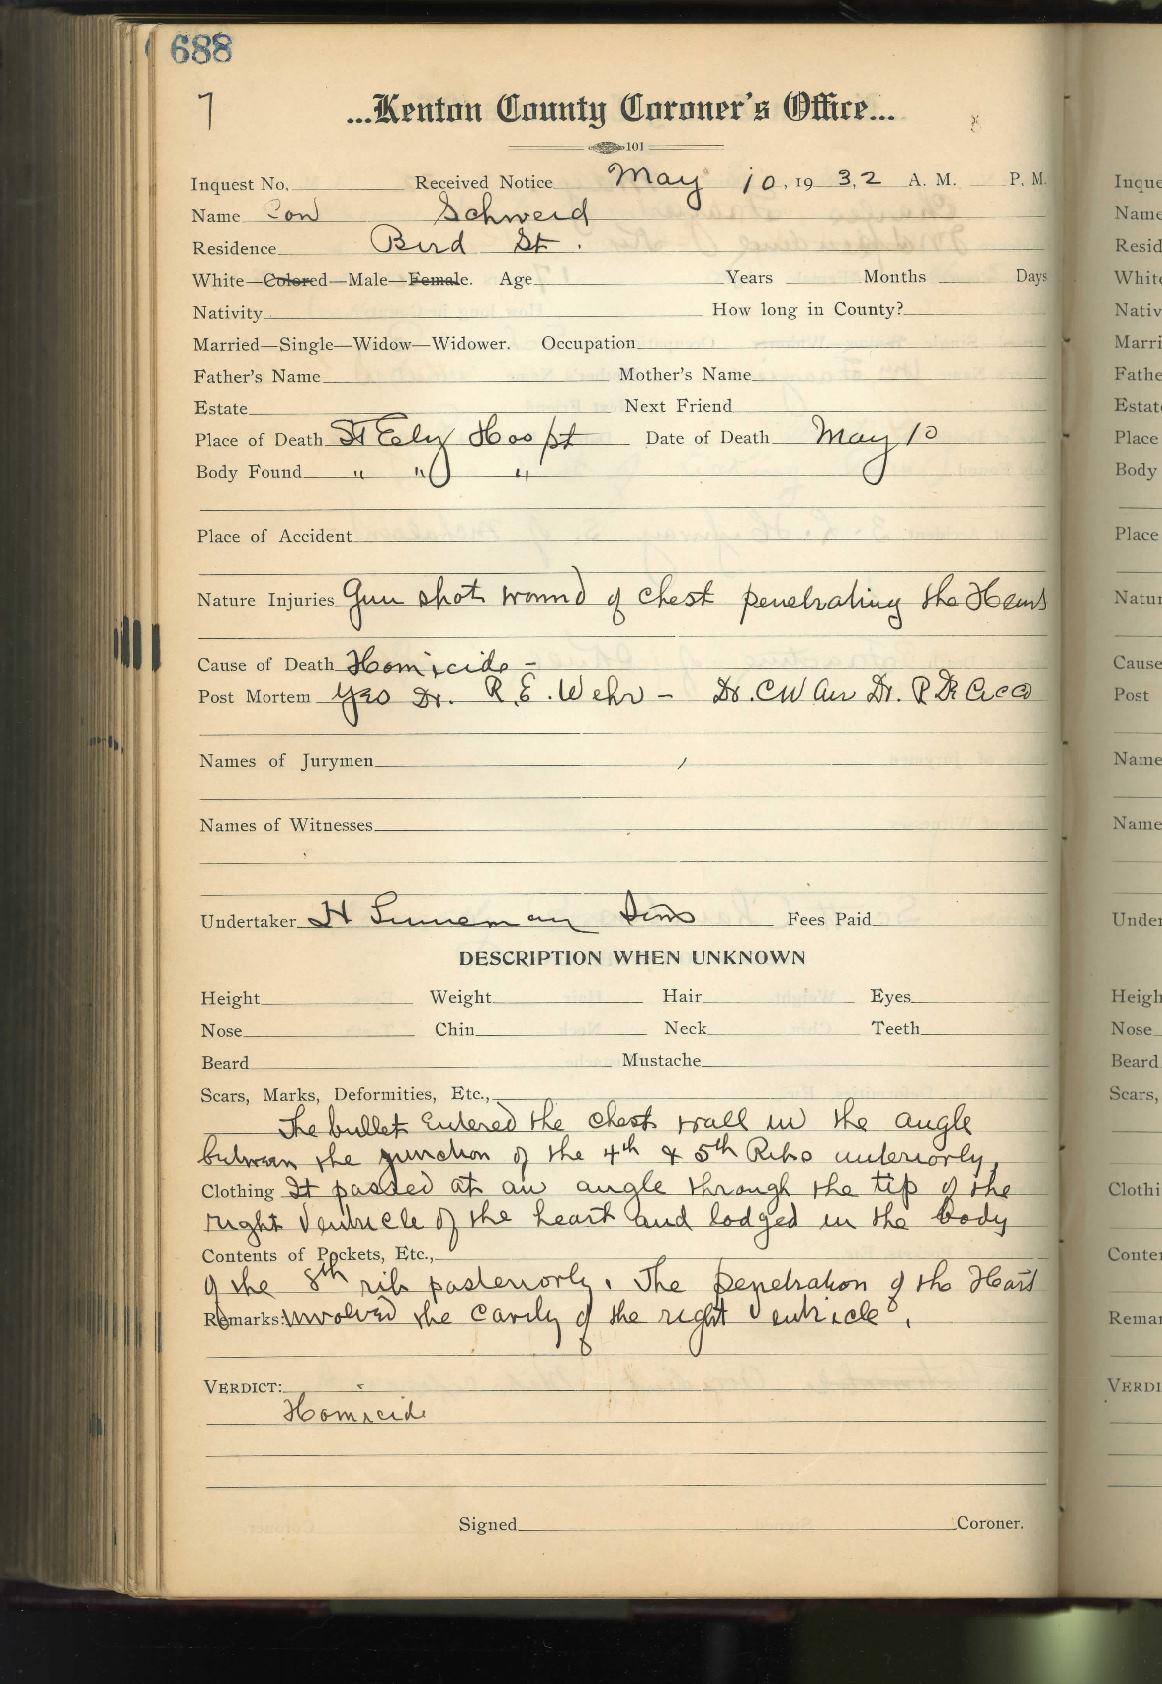 688
7
...Kenton County Coroner's Office...
101
Inquest No. Received Notice May 10, 1932 A. M. P. M.
Name Con Schweid
Residence Bird St.
White—Colored—Male—Female. Age Years Months Days
Nativity How long in County?
Married—Single—Widow—Widower. Occupation
Father's Name Mother's Name
Estate Next Friend
Place of Death St Eely Hospt Date of Death May 10
Body Found " " "
Place of Accident
Nature Injuries Gun shot wound of chest penetrating the Heart
Cause of Death Homicide -
Post Mortem Yes Dr. R. E. Wehr - Dr. C W Dr. P
Names of Jurymen
Names of Witnesses
Undertaker H Linneman Sons Fees Paid
DESCRIPTION WHEN UNKNOWN
Height Weight Hair Eyes
Nose Chin Neck Teeth
Beard Mustache
Scars, Marks, Deformities, Etc.,
The bullet Entered the chest wall in the angle
between the junction of the 4th & 5th Ribs anteriorly,
Clothing It passed at an angle through the tip of the
right Ventricle of the heart and lodged in the body
Contents of Pockets, Etc.,
of the 8th rib posteriorly. The penetration of the Heart
Remarks: involved the cavity of the right Ventricle.
VERDICT:
Homicide
Signed Coroner.
Inque
Name
Resid
White
Nativ
Marri
Fathe
Estate
Place
Body
Place
Natur
Cause
Post
Name
Name
Under
Heigh
Nose
Beard
Scars,
Clothi
Conter
Remar
VERDI